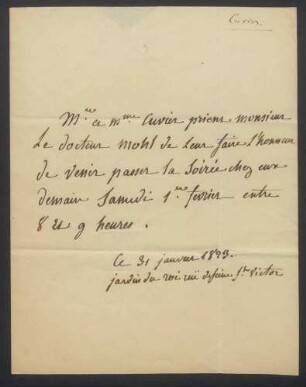 Cuvier.
Mr. et mme Cuvier prient monsieur
Le docteur mohl de Leur faire L'honneur
de venir passer la Soirée chez eux
demain Samedi 1er fevrier entre
8 et 9 heures.
Ce 31 janvier 1823.
jardin du roi rue de Seine St. Victor